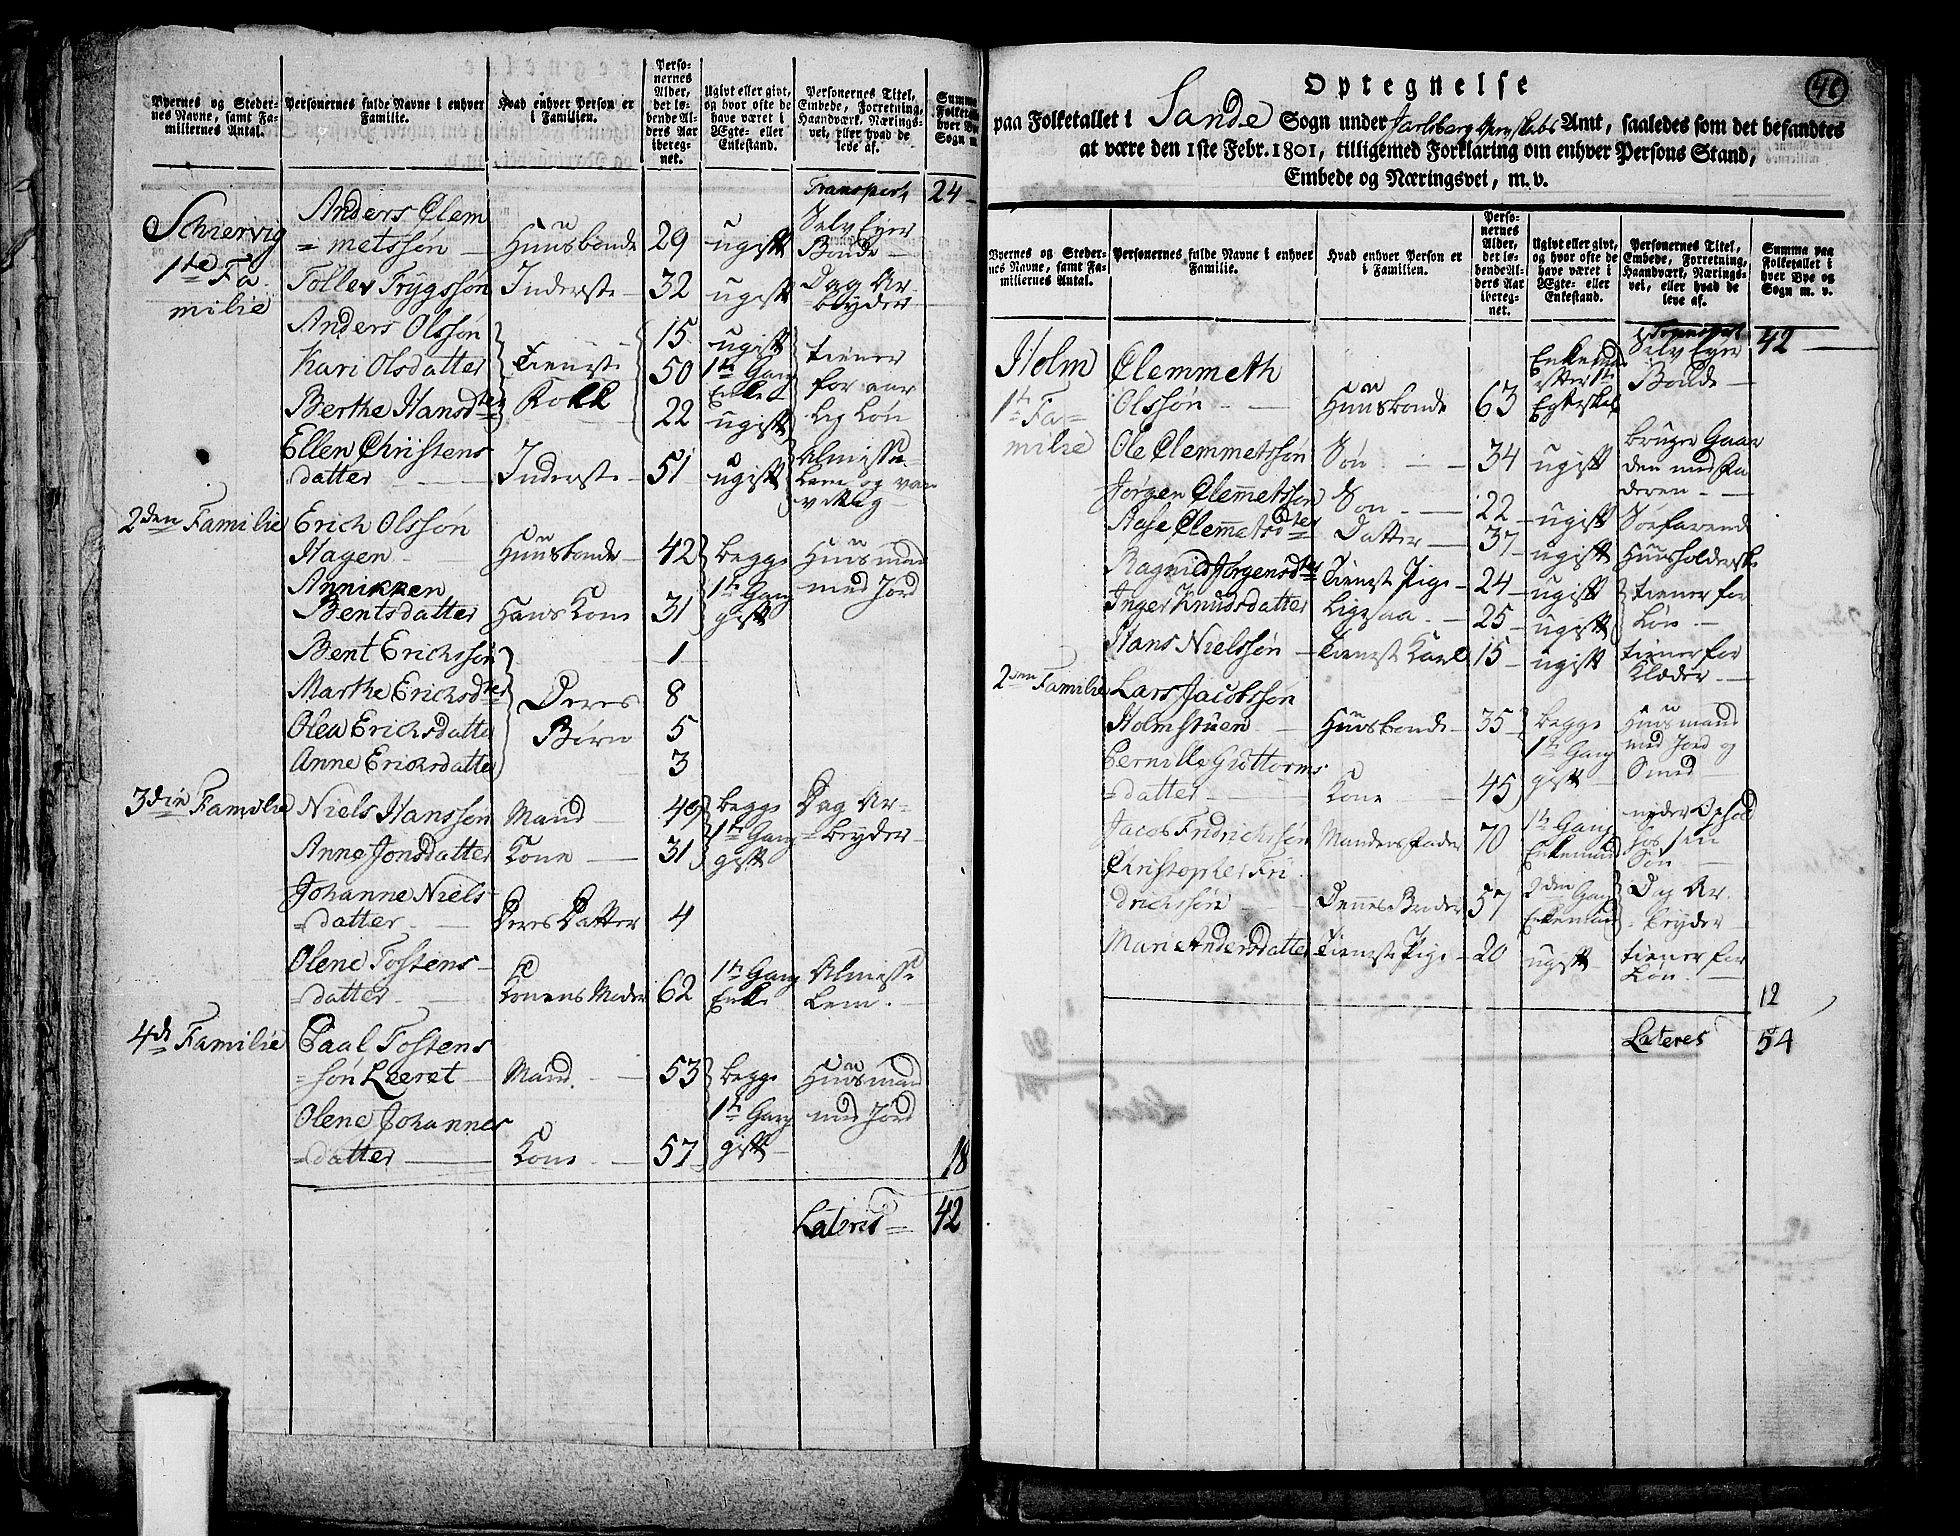 Byernes og Steder-
nes Navne, samt Fa-
miliernes Antal.
Personernes fulde Navne i enhver
Familie.
Hvad enhver Person er
i Familien.
Perso-
nernes
Alder,
det lø-
bende Al-
ders Aar
iberegnet.
Ugivt eller givt,
og hvor ofte de
have været i
Ægte- eller
Enkestand.
Personernes Titel,
Embede, Forretning,
Haandværk, Nærings-
vei, eller hvad de
leve af.
Summa
Folketallet
hver By
Sogn m.
Transport 24
Schiervig Anders Clem
=metssøn Huusbonde 29 ugift Selv Eyer Bonde
1te Fa
milie
Tollev Trygssøn Inderste 32 ugift Dag Ar-
beyder
Anders Olssøn 15 ugift
Kari Olsdatter Tieneste 50 1te Gang Enke tiener
Berthe Hansdter Folk 22 ugift for aar
lig Løn
Ellen Christens
datter Inderste 51 ugift Almisse
Lem og van
vittig
2den Familie Erich Olssøn
Hagen Huusbonde 42 begge Huusmand
Annikken
Bentsdatter Hans Kone 31 1te Gang gift med Jord
Bent Erichssøn 1
Marthe Erichsdter Deres 8
Olea Erichsdatter Børn 5
Anne Erichsdatter 3
3die Familie Niels Hanssøn Mand 49 begge Dag Ar-
Anne Jonsdatter Kone 31 1te Gang gift =beyder
Johanne Niels
=datter Deres Datter 4
Olene Tostens
=datter Konens Moder 62 1te Gang Enke Almisse
Lem
4de Familie Paal Tostens
=søn Leeret Mand 53 begge Huusmand
Olene Johannes 1te Gang med Jord
=datter Kone 57 gift
18
Lateris 42
46
Optegnelse
paa Folketallet i Sande Sogn under Jarlsberg Grevskabs Amt, saaledes som det befandtes
at være den 1ste Febr. 1801, tilligemed Forklaring om enhver Persons Stand,
Embede og Næringsvei, m. v.
Byernes og Steder-
nes Navne, samt Fa-
miliernes Antal.
Personernes fulde Navne i enhver
Familie.
Hvad enhver Person er
i Familien.
Perso-
nernes
Alder,
det lø-
bende Al-
ders Aar
ibereg-
net.
Ugivt eller givt,
og hvor ofte de
have været i
Ægte- eller
Enkestand.
Personernes Titel,
Embede, Forretning,
Haandværk, Nærings-
vei, eller hvad de
leve af.
Summa paa
Folketallet i
hver Bye og
Sogn m. v.
Transport 42
Holm Clemmeth
1te Fa-
milie
Olssøn Huusbonde 63 Enkemand
efter 1te
Egteskab Selv Eyer
Bonde
Ole Clemmetssøn Søn 34 ugift bruger Gaar
den med Fa
deren
Jørgen Clemetssøn Søn 22 ugift Søefarende
Aase Clemetsdter Datter 37 ugift Huusholderske
Ragnild Jørgensdter Tienest Pige 24 ugift tiener for
Inger Knudsdatter Ligesaa 25 ugift Løn
Hans Nielssøn Tienest Karl 15 ugift tiener for
Klæder
2den Familie Lars Jacobssøn
Holmstuen Huusbonde 35 begge Huusmand
Pernille Guttorms 1te Gang med Jord og
=datter Kone 45 gift Smed
Jacob Fridrichssøn Mandens Fader 70 1te Gang
Enkemand nyder Ophold
hos sin
Søn
Christopher Fri
drichssøn Dennes Broder 57 2den Gang
Enkemand Dag Ar
=beyder
Mari Andersdatter Tienest Pige 20 ugift tiener for
Løn
12
Lateres 54